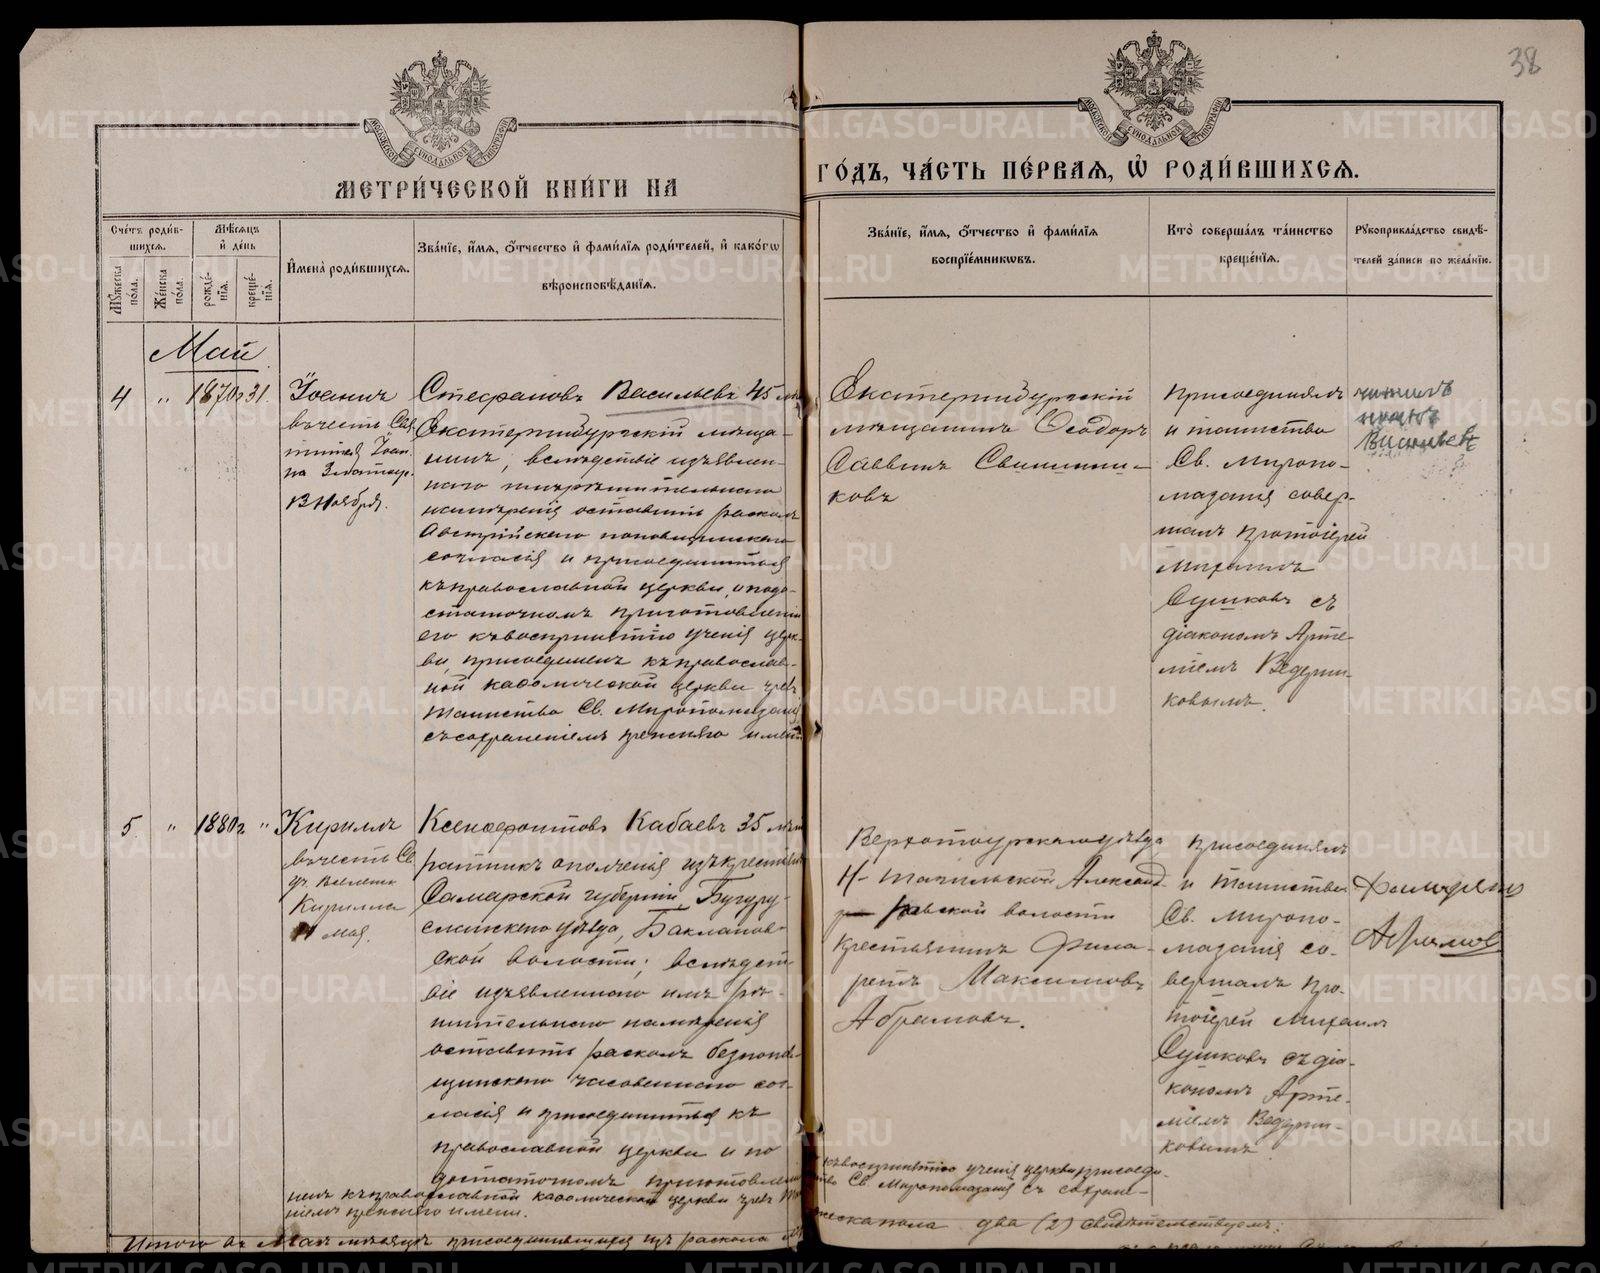 38
МОСКОВСКОЙ СѴНОДАЛЬНОЙ ТИПОГРАФІИ
МОСКОВСКОЙ СѴНОДАЛЬНОЙ ТИПОГРАФІИ
МЕТРИ́ЧЕСКОЙ КНИ́ГИ НА
ГО́ДЪ, ЧА́СТЬ ПЕ́РВАѦ, Ѡ҆ РОДИ́ВШИХСѦ.
Сче́тъ роди́в-
шихсѧ.
Мꙋ́жеска по́ла.
Же́нска по́ла.
Мѣ́сѧцъ
и҆ де́нь
рожде́-
нїѧ.
креще́-
нїѧ.
И҆мена̀ роди́вшихсѧ.
Зва́нїе, и҆́мѧ, ѻ҆́тчество и҆ фами́лїѧ роди́телей, и҆ како́гѡ
вѣроисповѣ́данїѧ.
Зва́нїе, и҆́мѧ, ѻ҆́тчество и҆ фами́лїѧ
воспрїе́мникѡвъ.
Кто̀ соверша́лъ та́инство
креще́нїѧ.
Рꙋкоприкла́дство свидѣ́-
телей за́писи по жела́нїю.
Май
4 " 1870 г 31.
Іоаннъ
въ честь Свя
тителя Іоан
на Златоус.
13 Ноября.
Стефановъ Васильевъ 45 лѣт
Екатеринбургскій мѣща-
нинъ, вслѣдствіе изъявлен-
наго имъ рѣшительнаго
намѣренія оставить расколъ
Австрійскаго поповщинскаго
согласія и присоединиться
къ православной церкви, по до-
статочномъ приготовленіи
его къ воспринятію ученія церк-
ви, присоединенъ къ православ-
ной каѳолической церкви чрезъ
таинство Св. Мѵропомазанія
съ сохраненіемъ прежняго имени
Екатеринбургскій
мѣщанинъ Ѳеодоръ
Саввинъ Свинини-
ковъ
Присоединялъ
и таинство
Св. Миропо-
мазанія совер-
шалъ протоіерей
Михаилъ
Сушковъ съ
діакономъ Арте-
міемъ Ведерни-
ковымъ.
Васильевъ
5. " 1880 г. "
Кириллъ
въ честь Св.
Кирилла
11 Мая.
Ксенофонтовъ Кабаевъ 35 лѣт
ратникъ ополченія изъ крестьян
Самарской губерніи, Бугуру-
сланскаго уѣзда, Баклановс-
ской волости; вслѣдст-
віе изъявленнаго имъ рѣ-
шительнаго намѣренія
оставить расколъ безпопов-
щинскаго часовеннаго сог-
ласія и присоединиться къ
православной церкви и по
достаточномъ приготовленіи
къ воспринятію ученія церкви присоеди-
ненъ къ православной каѳолической церкви чрезъ таин
ство Св. Миропомазанія съ сохране-
ніемъ прежняго имени.
Верхотурскаго уѣзда
Н-Тагильской Александ
ровской волости
крестьянинъ Фила-
ретъ Максимовъ
Абрамовъ.
Присоединялъ
и таинство
Св. Миропо-
мазанія со-
вершалъ про-
тоіерей Михаилъ
Сушковъ съ діа-
кономъ Арте-
міемъ Ведерни-
ковымъ
Филаретъ
Абрамовъ
Итого въ Маѣ мѣсяцѣ присоединившихся изъ раскола
жеска пола два (2) свидѣтельствуемъ: